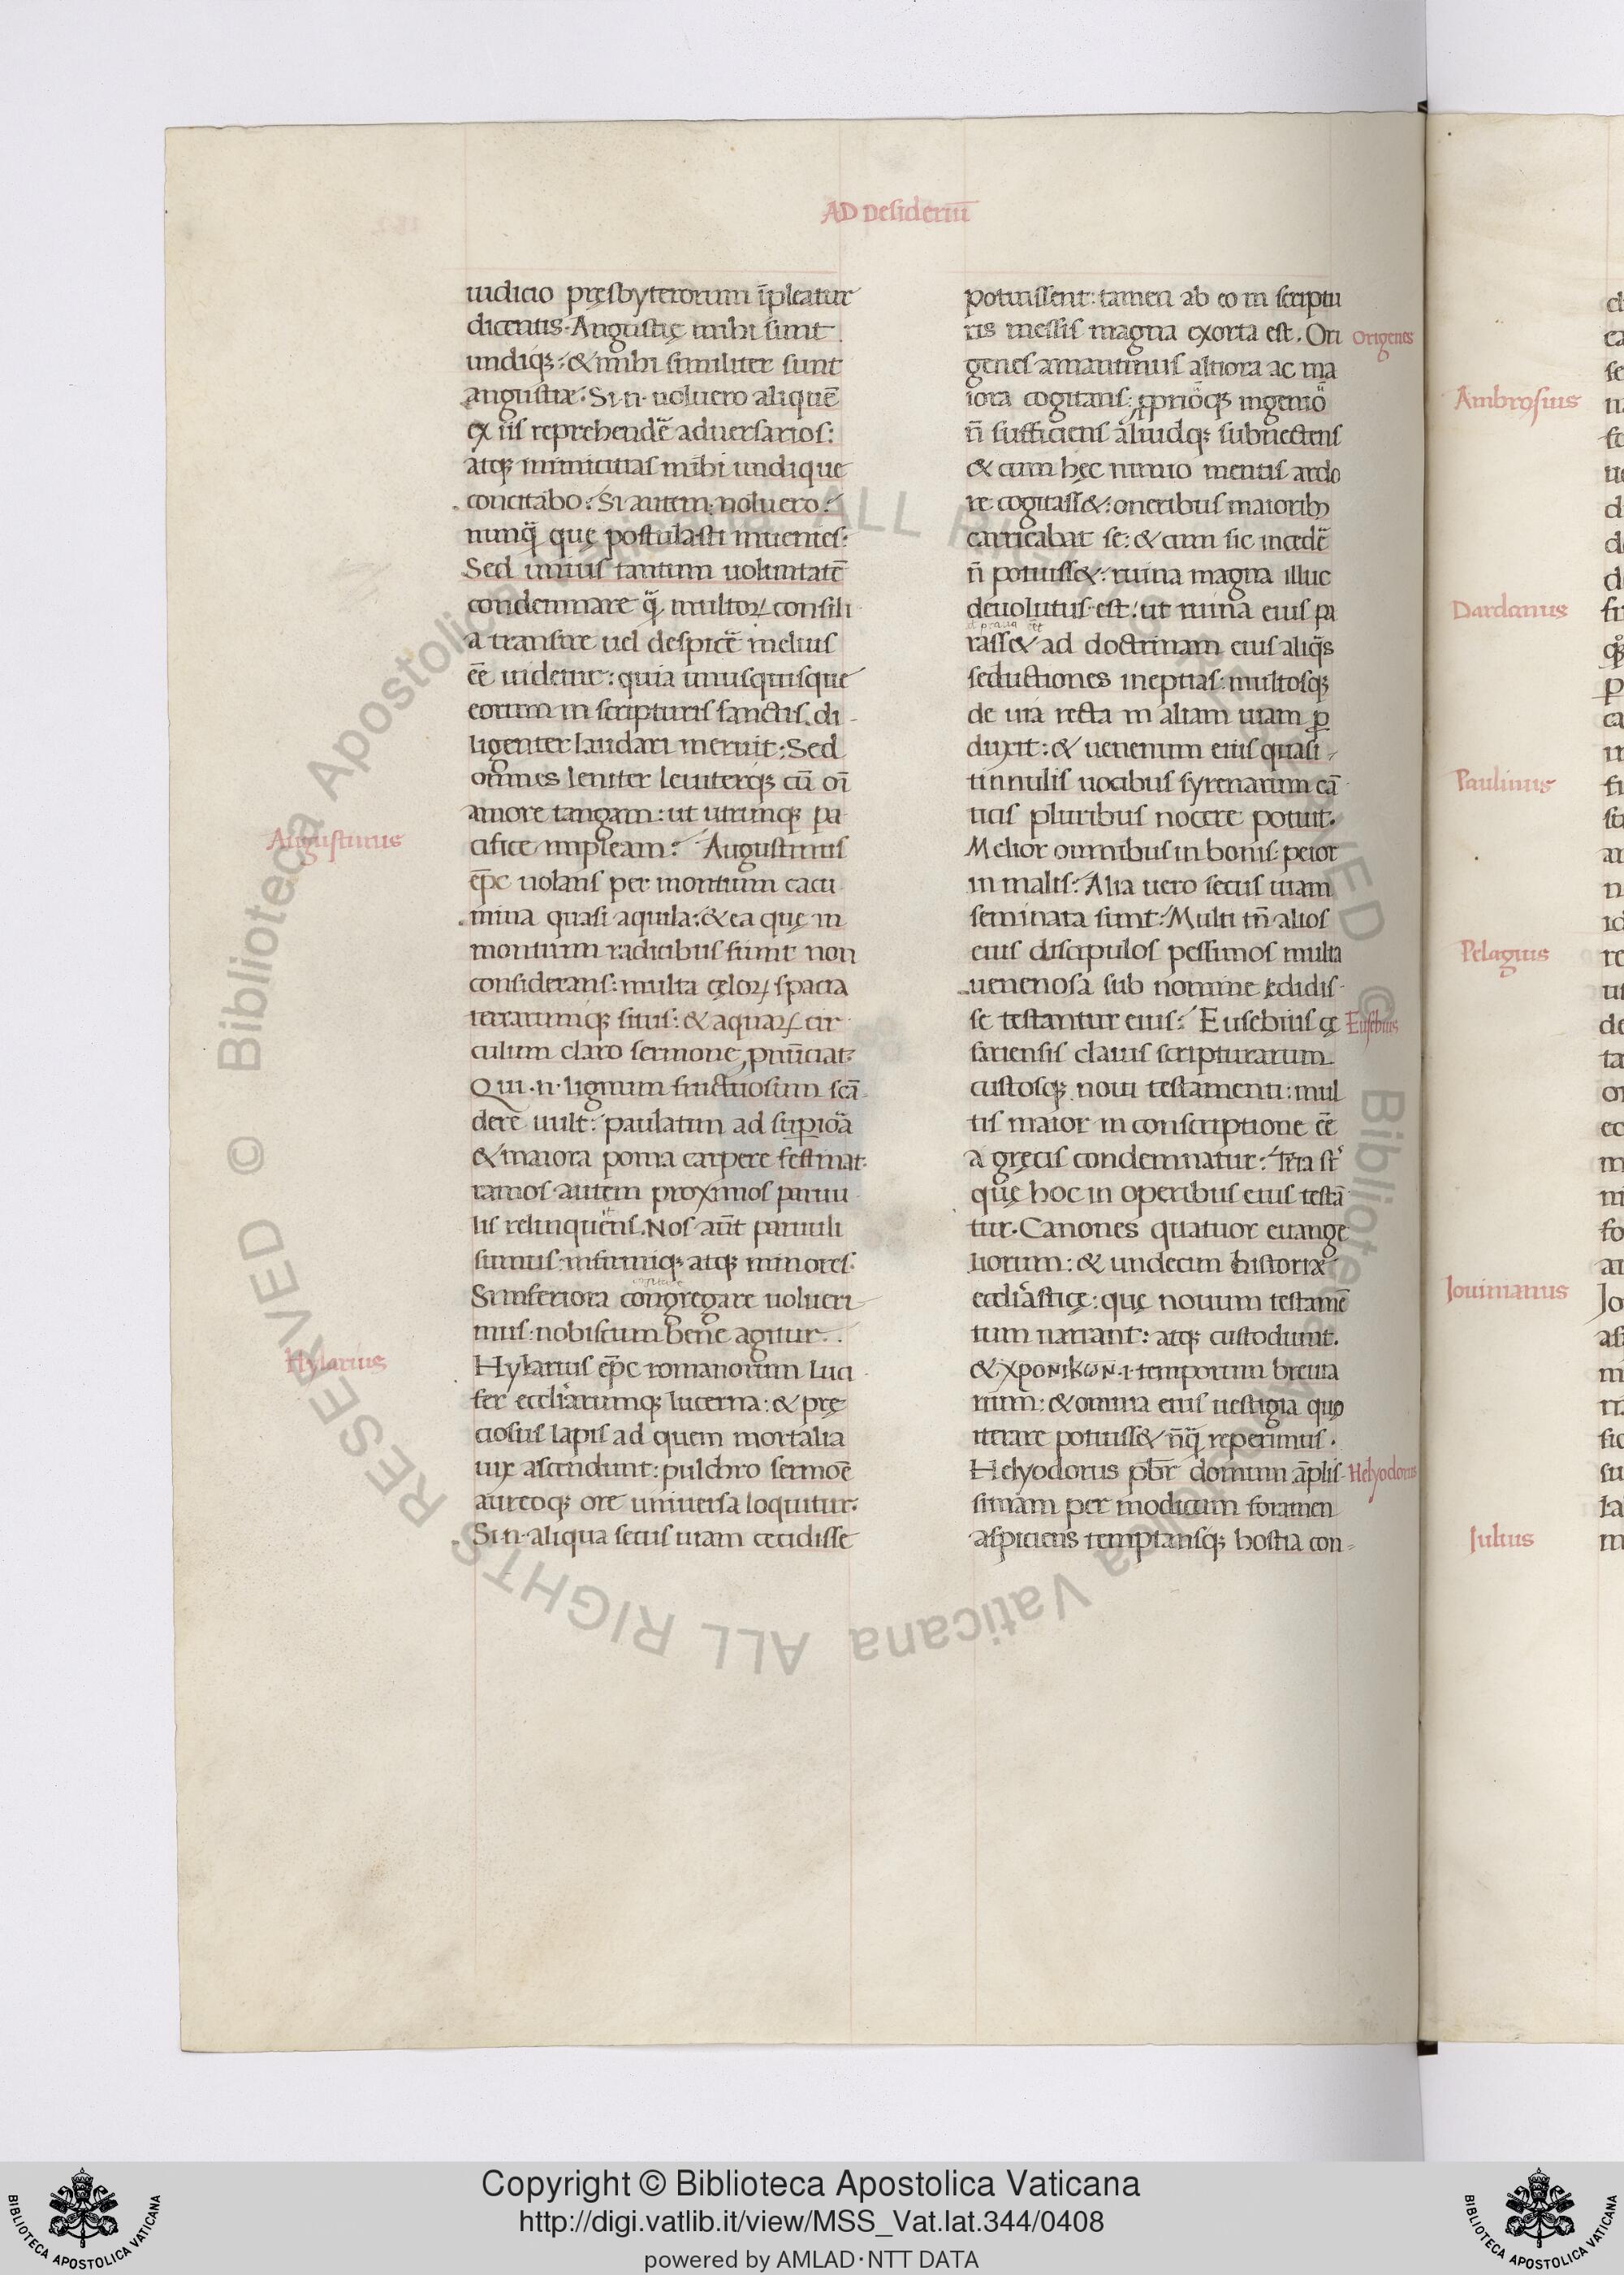 AD Desideriū
iudicio pręsbyterorum īpleatur
dicentis. Angustię mihi sunt
undiqꝫ: & mihi similiter sunt
angustiæ: Si .n. uoluero aliquē
ex iis reprehendē aduersarios:
atqꝫ inimicitias mihi undique
concitabo: Si autem noluero:
nunq̄ quę postulasti inuenies:
Sed unius tantum uoluntatē
condemnare q̄ multoꝝ consili
a transire uel despicē melius
ēē uidetur: quia unusquisque
eorum in scripturis sanctis di
ligenter laudari meruit: Sed
omnes leniter leuiterqꝫ cū oī
amore tangam: ut utrunqꝫ pa
cifice impleam: Augustinus
ep̄c uolans per montium cacu
mina quasi aquila: & ea quę in
montium radicibus sunt non
considerans: multa cęloꝝ spacia
terrarumqꝫ situs: & aquaꝝ cir
culum claro sermone ꝓnūciat:
Qui .n. lignum fructuosum scā
dere uult: paulatim ad supiōa
& maiora poma carpere festinat:
ramos autem proximos paruu
lis relinquens. Nos aūt paruuli
sumus: infirmiqꝫ atqꝫ minores:
Si inferiora congregare uolueri
mus: nobiscum bene agitur.
Hylarius ep̄c romanorum luci
fer eccliarumqꝫ lucerna: & pre
ciosus lapis ad quem mortalia
uix ascendunt: pulchro sermoē
aureoqꝫ ore uniuersa loquitur.
Si .n. aliqua secus uiam cecidisse
Augustinus
Hylarius
potuissent: tamen ab eo in scriptu
ris messis magna exorta est. Ori
genes amantinus altiora ac ma
iora cogitans: ꝓpriōqꝫ ingenio
n̄ sufficiens aliudqꝫ subnectens
& cum hęc nimio mentis ardo
re cogitass&: oneribus maioribꝫ
carricabat se: & cum sic incedē
n̄ potuiss&: ruina magna illuc
deuolutus est: ut ruina eius pa
rass& ad doctrinam eius aliq̄s
seductiones ineptias: multosqꝫ
de uia recta in aliam uiam ꝑ
duxit: & uenenum eius quasi
tinnulis uocibus syrenarum cā
ticis pluribus nocere potuit.
Melior omnibus in bonis: peior
in malis: Alia uero secus uiam
seminata sunt: Multi tn̄ alios
eius discipulos pessimos multa
uenenosa sub nomine edidis
se testantur eius: Eusebius cę
sariensis clauis scripturarum
custosqꝫ noui testamenti: mul
tis maior in conscriptione ēē
a gręcis condemnatur: Tria st̄
quę hoc in operibus eius testā
tur. Canones quatuor euange
liorum: & undecim historiæ
eccliasticę: quę nouum testamē
tum narrant: atqꝫ custodiunt.
& χρονικων .i. temporum breuia
rium: & omnia eius uestigia quo
iterare potuiss& n̄q̄ reperimus.
Helyodorus pb̄r domum āplis
simam per modicum foramen
aspiciens temptansqꝫ hostia con
Origenes
Eusebius
Helyodorus
Ambrosius
Dardanus
Paulinus
Pelagius
Iouinianus
Julius
© Biblioteca Apostolica Vaticana ALL RIGHTS RESERVED © Biblioteca Apostolica Vaticana ALL RIGHTS RESERVED
Copyright © Biblioteca Apostolica Vaticana
http://digi.vatlib.it/view/MSS_Vat.lat.344/0408
powered by AMLAD·NTT DATA
BIBLIOTECA APOSTOLICA VATICANA
BIBLIOTECA APOSTOLICA VATICANA